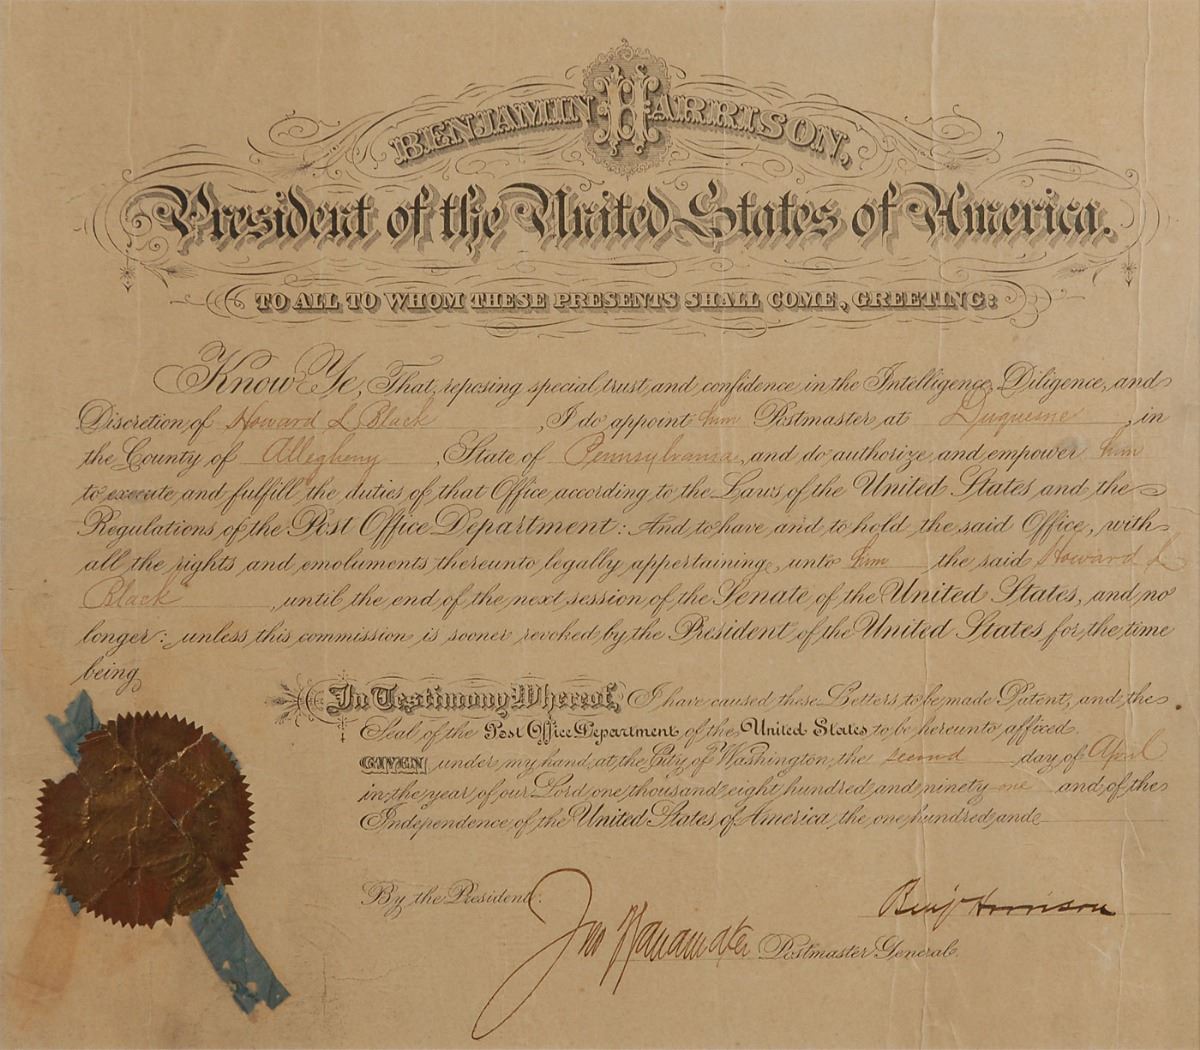 BENJAMIN HARRISON,
President of the United States of America.
TO ALL TO WHOM THESE PRESENTS SHALL COME, GREETING:
Know Ye, That, reposing special trust and confidence in the Intelligence, Diligence, and
Discretion of Howard L Black, I do appoint him Postmaster at Duquesne, in
the County of Allegheny, State of Pennsylvania, and do authorize and empower him
to execute and fulfill the duties of that Office according to the Laws of the United States and the
Regulations of the Post Office Department: And to have and to hold the said Office, with
all the rights and emoluments thereunto legally appertaining, unto him the said Howard L
Black, until the end of the next session of the Senate of the United States, and no
longer; unless this commission is sooner revoked by the President of the United States for the time
being
In Testimony Whereof, I have caused these Letters to be made Patent, and the
Seal of the Post Office Department of the United States to be hereunto affixed.
GIVEN under my hand, at the City of Washington, the second day of April
in the year of our Lord one thousand eight hundred and ninety one and of the
Independence of the United States of America, the one hundred and
By the President: Benj Harrison
Jno Wanamaker Postmaster General.